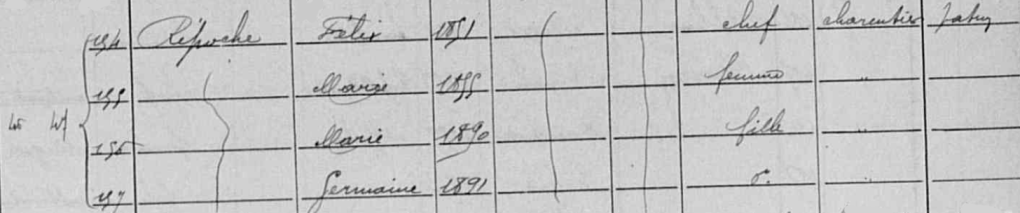 154 Répoche Félix 1851 chef charentier
155 Marie 1855 femme "
156 Marie 1890 fille "
157 Germaine 1891 d° "